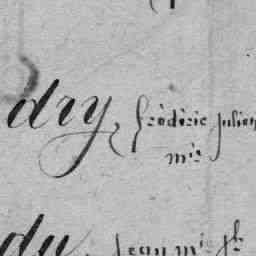 dry, frédéric Julien
mie
du Jean mie Jh